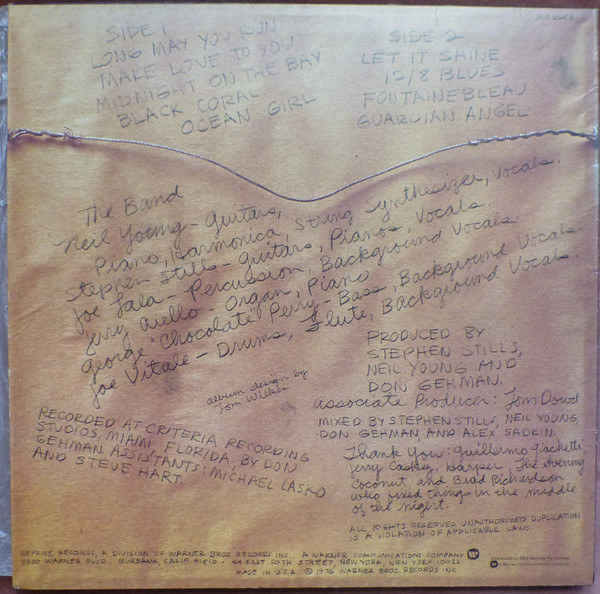 SIDE 1
LONG MAY YOU RUN
MAKE LOVE TO YOU
MIDNIGHT ON THE BAY
BLACK CORAL
OCEAN GIRL
SIDE 2
LET IT SHINE
12/8 BLUES
FONTAINEBLEAU
GUARDIAN ANGEL
The Band
Neil Young - Guitars,
Piano, Harmonica, String Synthesizer, Vocals.
Stephen Stills - Guitars, Pianos, Vocals.
Joe Lala - Percussion, Background Vocals
Jerry Aiello - Organ, Piano
George "Chocolate" Perry - Bass, Background Vocals.
Joe Vitale - Drums, Flute, Background Vocals.
album design by
Tom Wilkes
PRODUCED BY
STEPHEN STILLS,
NEIL YOUNG AND
DON GEHMAN.
Associate Producer: Tom Dowd
MIXED BY STEPHEN STILLS, NEIL YOUNG,
DON GEHMAN, AND ALEX SADKIN.
RECORDED AT CRITERIA RECORDING
STUDIOS, MIAMI FLORIDA, BY DON
GEHMAN. ASSISTANTS: MICHAEL LASKO
AND STEVE HART
Thank You: Guillermo Giachetti,
Jerry Caskey, Harper, The evening
Coconut, and Brad Richardson
who fixed things in the middle
of the night.
ALL RIGHTS RESERVED UNAUTHORIZED DUPLICATION
IS A VIOLATION OF APPLICABLE LAWS
REPRISE RECORDS, A DIVISION OF WARNER BROS. RECORDS INC., A WARNER COMMUNICATIONS COMPANY
3300 WARNER BLVD., BURBANK, CALIF. 91510 • 44 EAST 50TH STREET, NEW YORK, NEW YORK 10022
MADE IN U.S.A. © 1976 WARNER BROS. RECORDS INC.